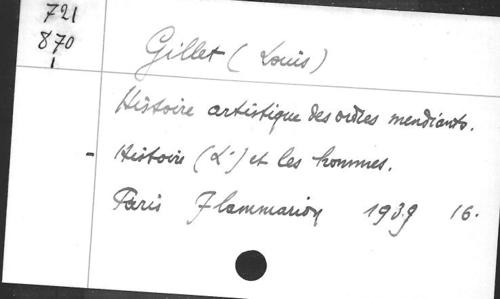 721
870
1
Gillet (Louis)
Histoire artistique des ordres mendiants.
- Histoire (L') et les hommes.
Paris Flammarion 1939 16.